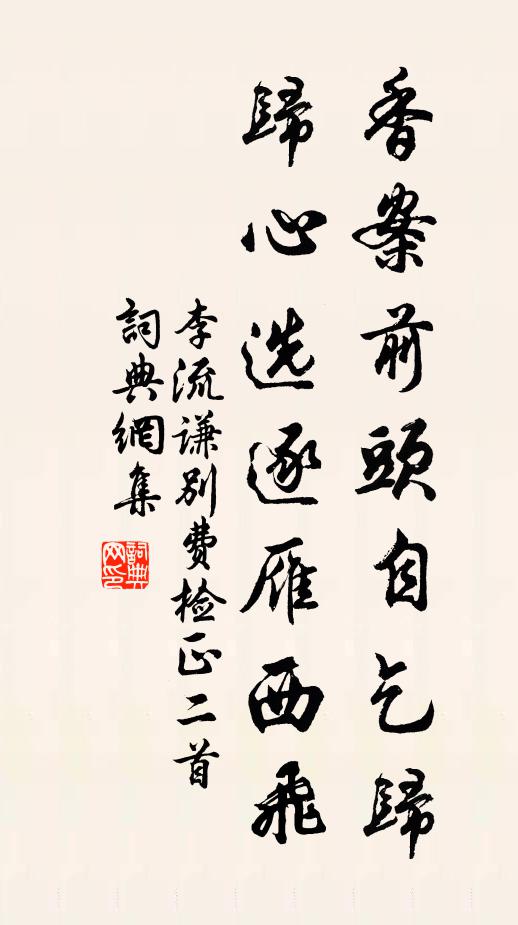 香案前頭自乞歸
歸心选逐雁西飛
李流谦别费检正二首
詞典網集
詞典网印